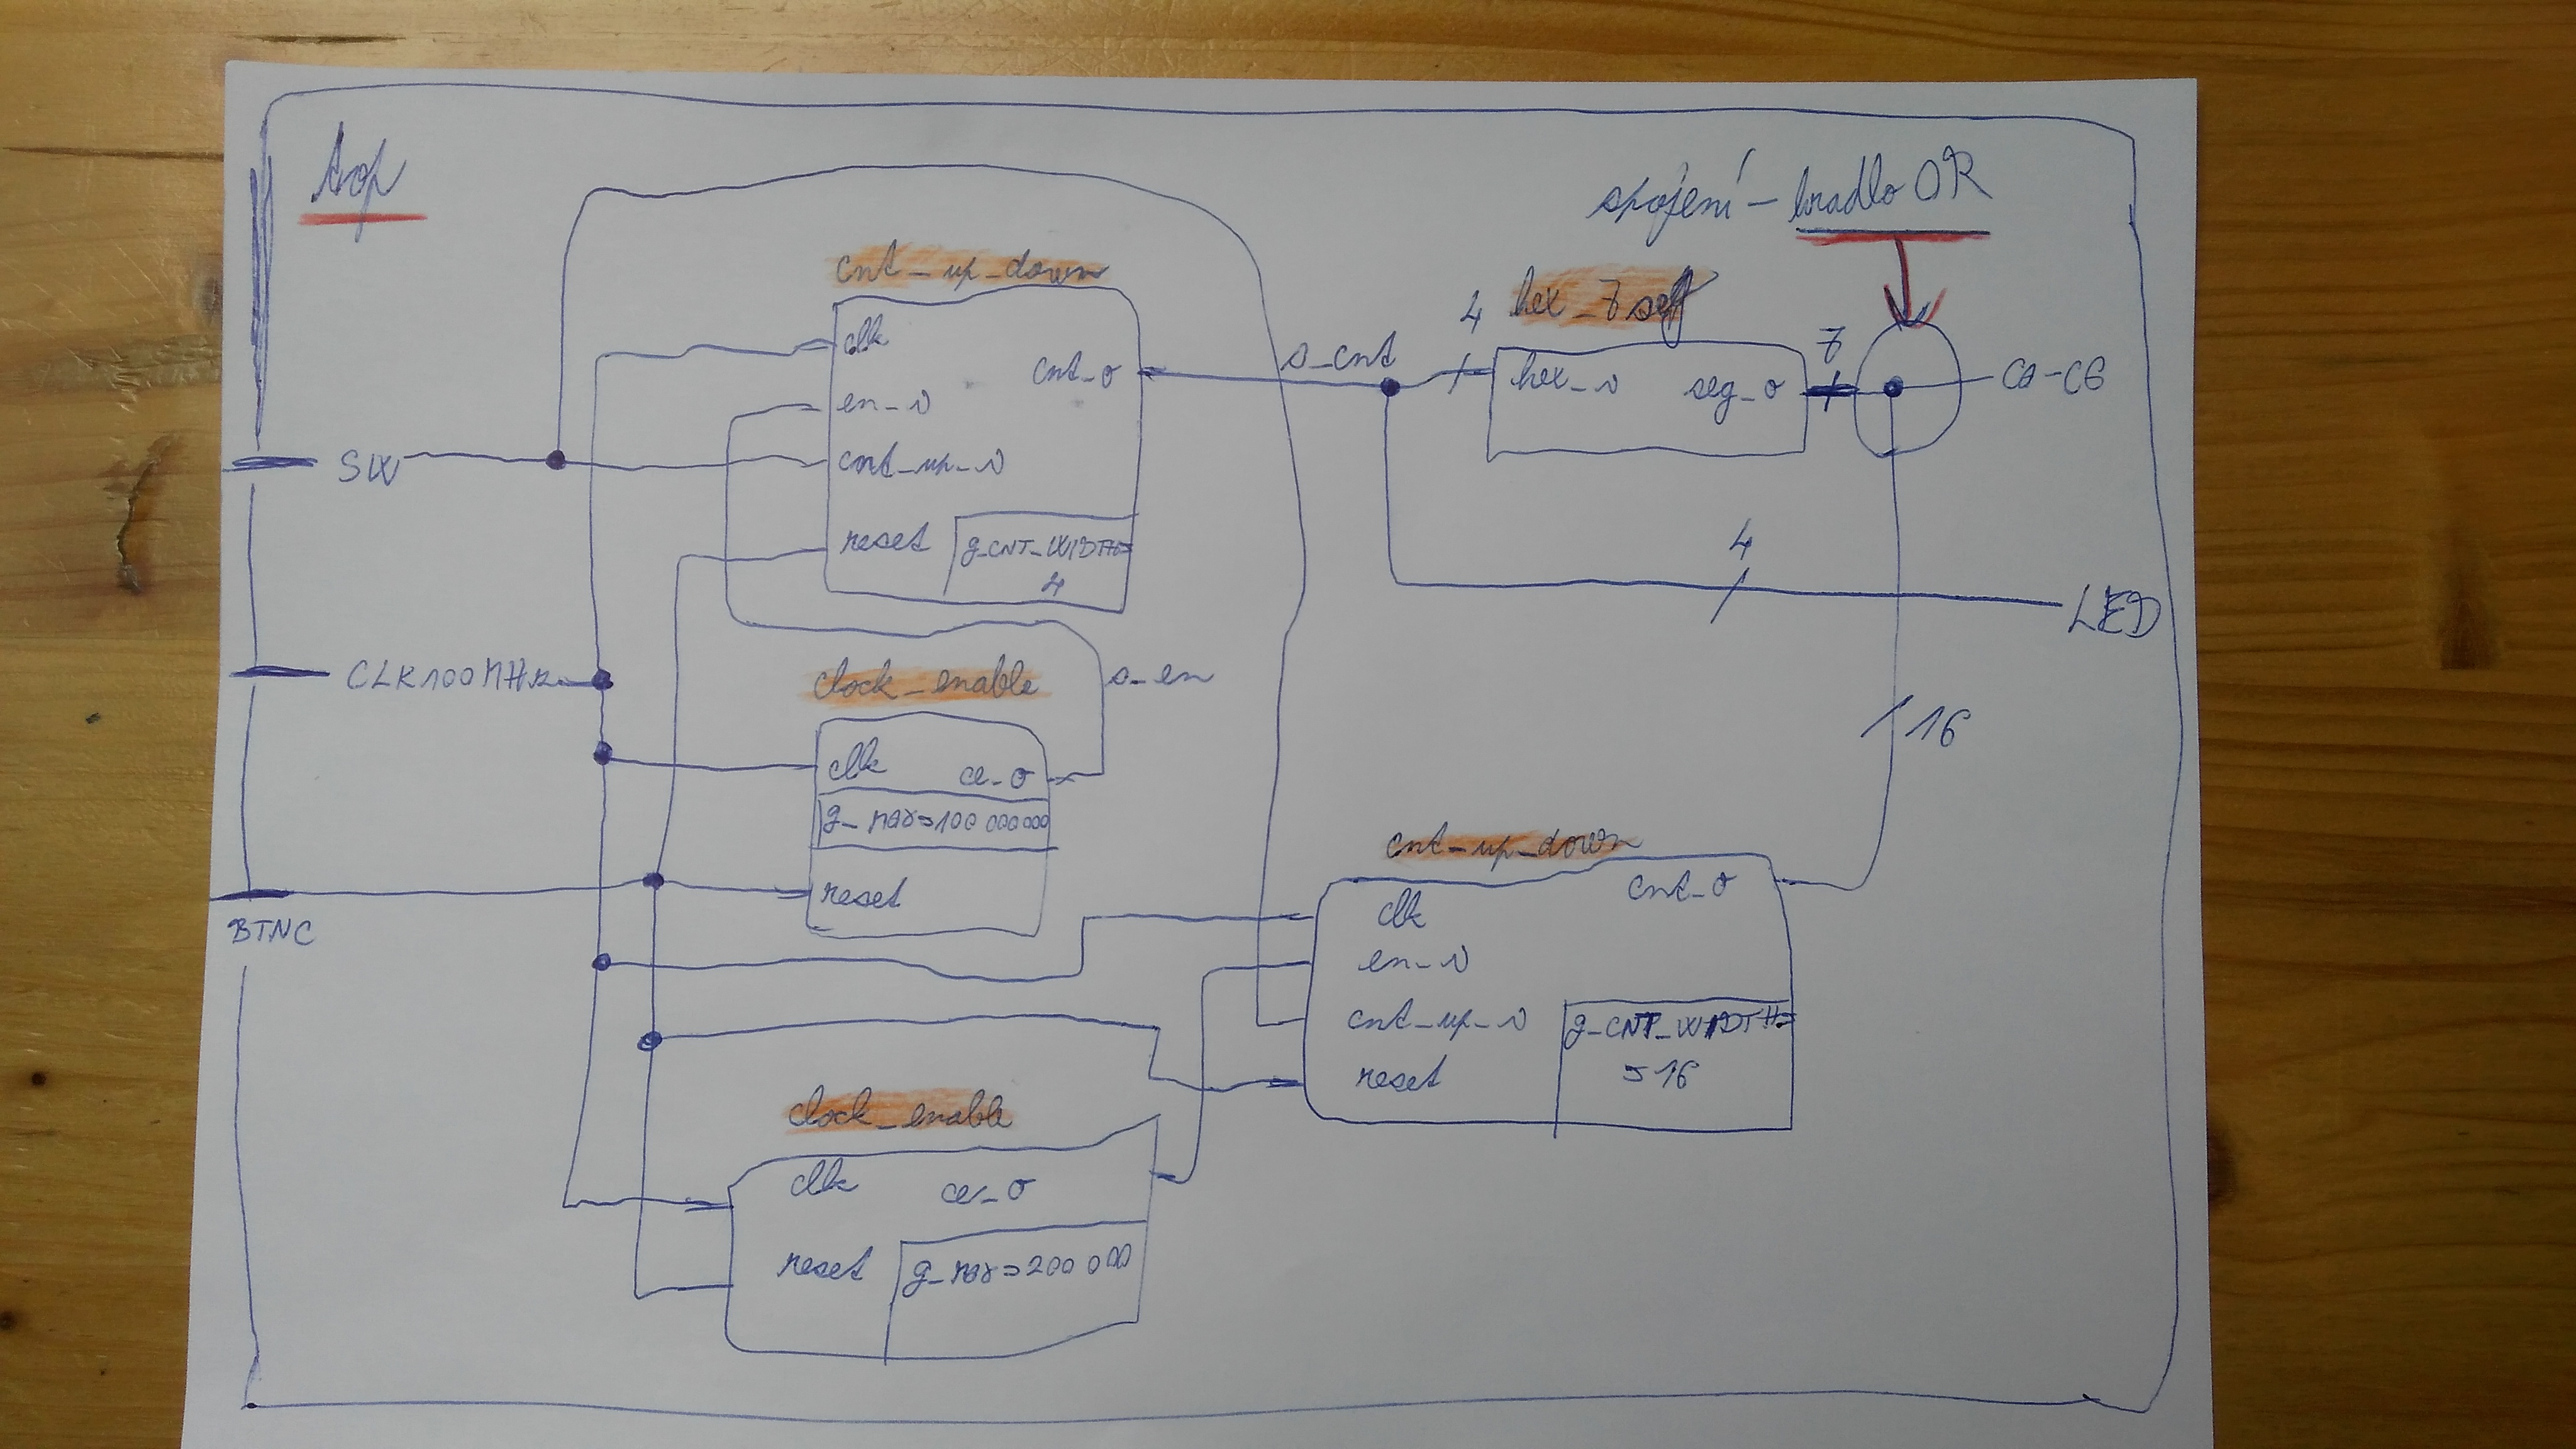 top
spojení - hradlo OR
cnt_up_down
clk
cnt_o
en_i
cnt_up_i
reset
g_CNT_WIDTH=
4
s_cnt
4
hex_7seg
hex_i
seg_o
7
CA-CG
SW
4
LED
CLK100MHz
clock_enable
s_en
clk
ce_o
g_MAX=100 000000
reset
16
BTNC
cnt_up_down
clk
cnt_o
en_i
cnt_up_i
g_CNT_WIDTH=
=16
reset
clock_enable
clk
ce_o
reset
g_MAX=200 000